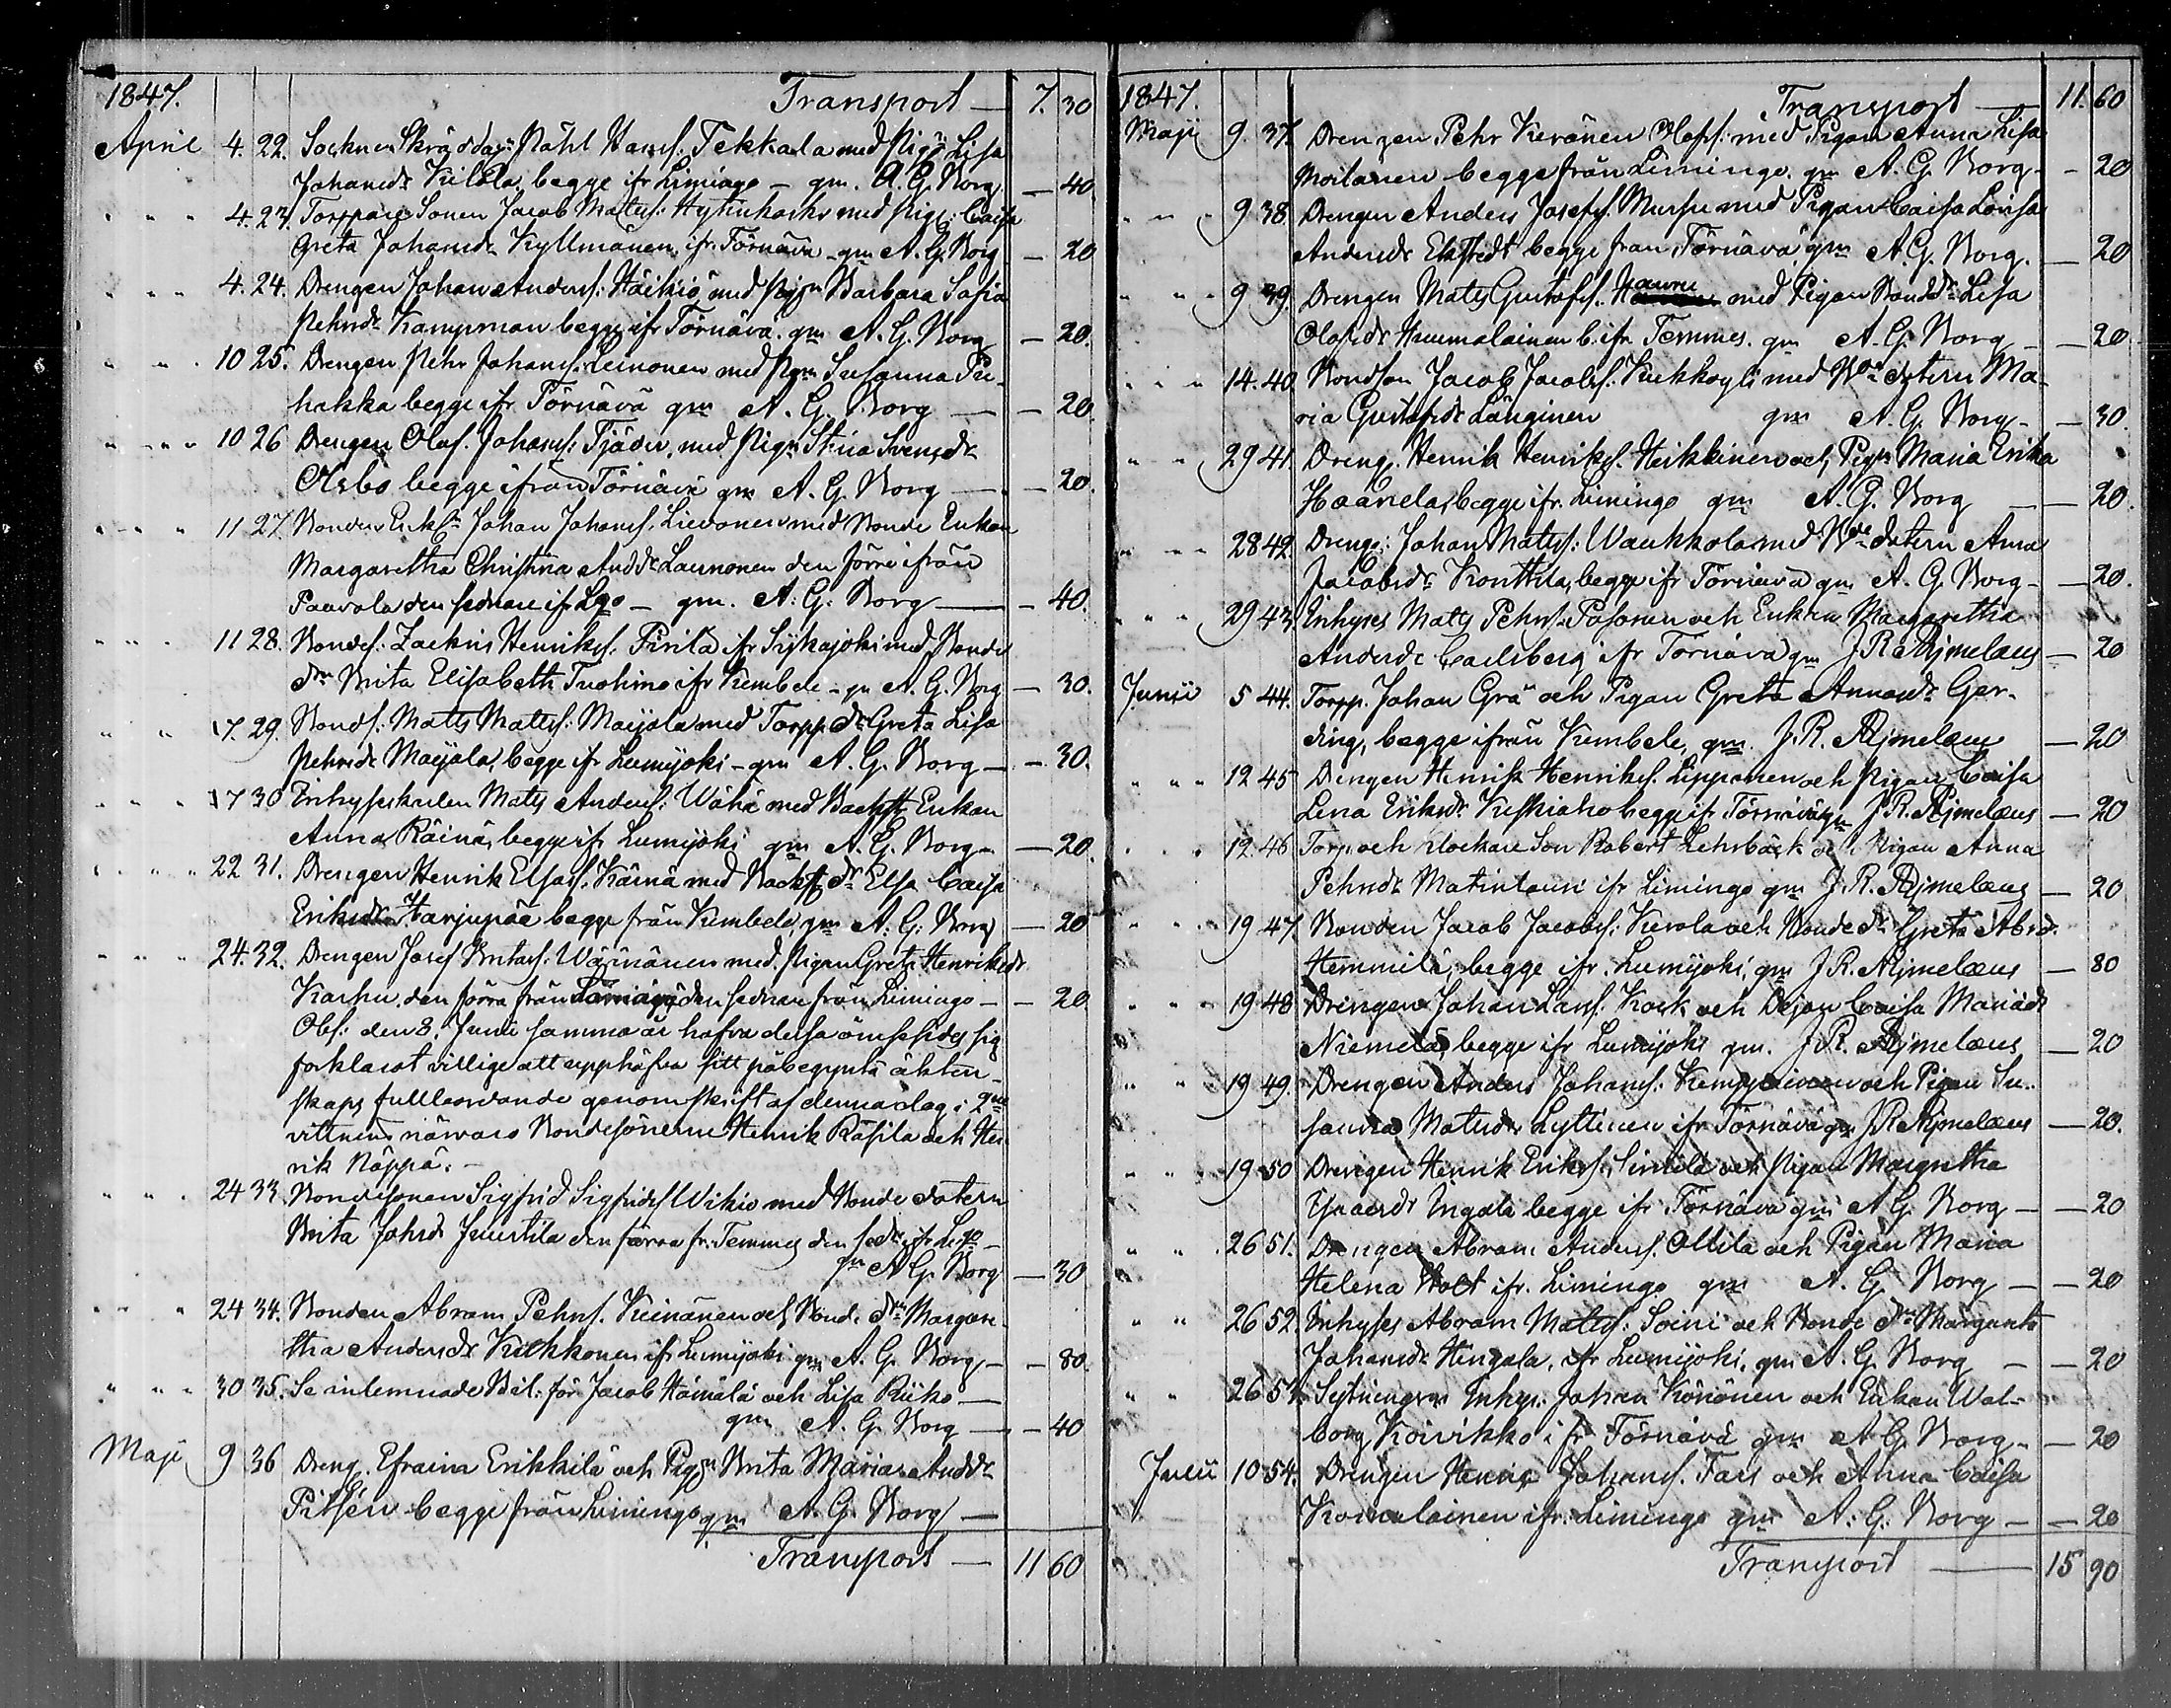 1847. Transport — 7. 30
April 4. 22. Socknen Skräddar: Påhl Hanss: Tekkala med Pig: Lisa
Johansdr Kilola, begge ifr Limingo - gm. A. G. Borg — 40
" " " 4. 23. Torppare Sonen Jacob Matss: Hytinkoski med Pig: Caisa
Greta Johansdr Kyllmänen ifr. Törnävä - gm A. G. Borg — 20
" " " 4. 24. Drengen Johan Anderss: Häikiö med Pigan Barbara Sofia
Pehrsdr Kampman begge ifr Törnävä. gm A. G. Borg — 20.
" " " 10 25. Drengen Pehr Johanss. Leinonen med Pigan Susanna Pu-
hakka begge ifr Törnävä gm A. G. Borg — — 20.
" " " 10 26 Drengen Olof. Johanss: Tjäder, med Pign Stina Svensdr
Olsbo begge ifrån Törnävä gm A. G. Borg — — 20.
" " " 11 27. Bonden Enkln Johan Johanss. Lievonen med Bonde Enkan
Margaretha Christina Andsdr Launonen den förre ifrån
Paavola den sednare ifr Lgo - gm. A: G: Borg — — 40.
" " " 11 28. Bondes: Zackris Henrikss. Pirilä ifr Siikajoki med Bonde
drn Brita Elisabeth Tuohino ifr Kembele - gm A. G. Borg — 30.
" " 17. 29. Bonds. Matts Mattss: Maijala med Torpp dr Greta Lisa
Pehrsdr Maijala, begge ifr Lumijoki - gm A. G. Borg — — 30.
" " " 17 30 Enhyseskarlen Matts Anderss: Wähä med Backst Enkan
Anna Räinä, begge ifr Lumijoki gm A. G. Borg — — 20.
" " " 22 31. Drengen Henrik Elsass. Kärnä med Backst dr Elsa Caisa
Eriksdr Harjunpää begge från Kembele, gm A. G. Borg — 20
" " " 24. 32. Drengen Josef Britass. Wäinänen med. Pigan Greta Henriksdr
Karhu, den förra från Törnävä den sednare från Limingo — — 20.
Obs: den 8. Junii samma år hafva dessa ömsesides sig
förklarat villige att upphäfva sitt påbegynta äkten-
skaps fullbordande genom skrift af denna dag i 2ne
vittnens närvaro Bondesönerne Henrik Räsilä och Hen
rik Näppä. —
" " " 24 33. Bondesonen Sigfrid Sigfridss Wikiö med Bonde dotern
Brita Johsdr Juustila den förra fr. Temmes den sedn ifr Lgo —
gm A G. Borg — 30
" " " 24 34. Bonden Abram Pehrs. Keinänen och Bond. drn Margare-
tha Andersdr Kukkonen ifr Lumijoki gm A. G. Borg — — 80.
" " " 30 35. Se inlemnade Bil: för Jacob Hämälä och Lisa Riiko —
gm A. G. Borg — — 40
Maji 9 36 Dreng. Efraim Erikkilä och Pign Brita Maria Andsdr
Pitsén begge från Limingo gm A. G. Borg —
Transport — 11 60
1847. Transport — 11. 60
Maji 9. 37. Drengen Pehr Keränen Olofss: med Pigan Anna Lisa
Moilanen begge från Limingo. gm A. G. Borg — — 20
" " " 9 38. Drengen Anders Josefss. Mursu med Pigan Caisa Lovisa
Andersdr Ekstedt begge från Törnävä, gm A. G. Borg. — 20
" " " 9 39. Drengen Mats Gustafss. Hauru med Pigan Bondedr Lisa
Olofsdr Huumalainen b. ifr Temmes. gm A. G. Borg — — 20
" " " 14. 40. Bondson Jacob Jacobss: Kukkoyli med Bde dotern Ma-
ria Gustafsdr Länginen gm A. G. Borg — — 30.
" " 29 41. Dreng. Henrik Henrikss. Heikkinen och Pign Maria Erika
Haanela, begge ifr. Limingo gm A. G. Borg — — 20.
" " " 28 42. Dreng: Johan Matss: Waukkola med Bde dotern Anna
Jacobsdr Konttila, begge ifr Törnävä gm A. G. Borg — — 20.
" " " 29 43. Inhyses Matts Pehrs. Pasonen och Enkan Margaretha
Andersdr Carlsberg ifr Törnävä gm J R Ajmelæus — 20
Junii 5 44. Torpp. Johan Grå och Pigan Greta Annasdr Ger-
ding, begge ifrån Kembele, gm. J. R. Ajmelæus — 20
" " " 12 45 Drengen Henrik Henrikss. Lipponen och Pigan Caisa
Lena Eriksdr Keskiaho begge ifr Törnävä gm J R. Ajmelæus — 20
" " " 12. 46 Torp. och klockare Son Robert Lehrbäck och Pigan Anna
Pehrsdr Matinlauri ifr Limingo gm J. R. Ajmelæus — 20
" " " 19 47. Bonden Jacob Jacobss: Kerola och Bonde dr Greta Absdr.
Hemmilä, begge ifr. Lumijoki, gm J R. Ajmelæus — 80
" " " 19 48 Drengen Johan Larss. Kock och Dejan Caisa Mariadr
Niemelä, begge ifr Lumijoki gm. J R. Ajmelæus — 20
" " 19 49. Drengen Anders Johanss: Kemppainen och Pigan Su-
sanna Matsdr Lyttinen ifr Törnävä gm J R Ajmelæus — 20.
" " " 19 50 Drengen Henrik Erikss. Simila och Pigan Margretha
Isaacsdr Ingala begge ifr Törnävä gm A G. Borg — — 20
" " 26 51. Drengen Abram Anderss. Ollila och Pigan Maria
Helena Holt ifr. Limingo gm A. G. Borg — — 20
" " 26 52. Inhyses Abram Matss: Soini och Bonde drn Margareta
Johansdr Hingala, ifr Lumijoki, gm A. G Borg — — 20
" " 26 53 Sytningsm Inhys: Johan Könönen och Enkan Wal-
borg Koivikko ifr Törnävä gm A G. Borg — — 20
Julii 10 54. Drengen Henric Johanss. Fars och Anna Caisa
Komulainen ifr. Limingo gm A: G: Borg — — 20
Transport — 15 90